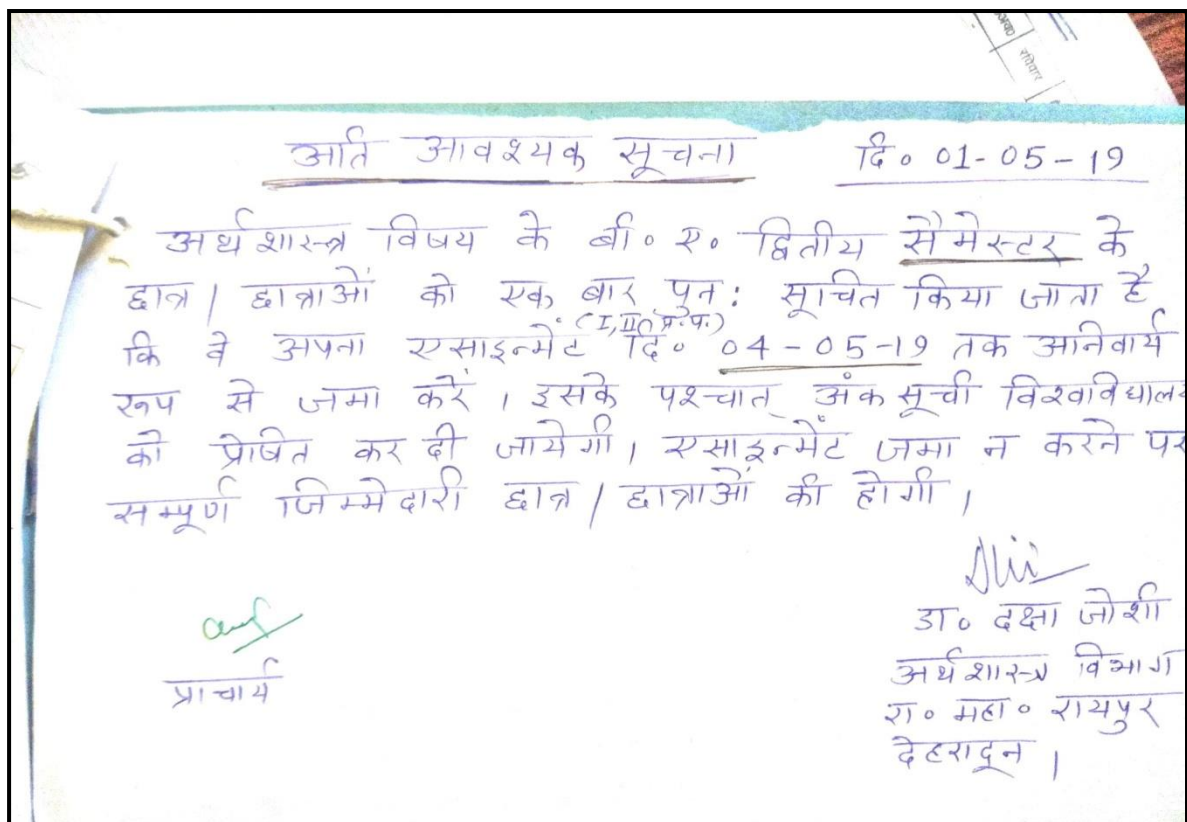 रविवार
अति आवश्यक सूचना दि० 01-05-19
अर्थशास्त्र विषय के बी० ए० द्वितीय सैमेस्टर के
छात्र / छात्राओं को एक बार पुन: सूचित किया जाता है
(I, II प्र. प.)
कि वे अपना एसाइन्मेंट दि० 04-05-19 तक अनिवार्य
रूप से जमा करें । इसके पश्चात् अंक सूची विश्वविद्यालय
को प्रेषित कर दी जायेगी। एसाइन्मेंट जमा न करने पर
सम्पूर्ण जिम्मेदारी छात्र / छात्राओं की होगी ।
डा० दक्षा जोशी
प्राचार्य
अर्थशास्त्र विभाग
रा० महा० रायपुर
देहरादून ।